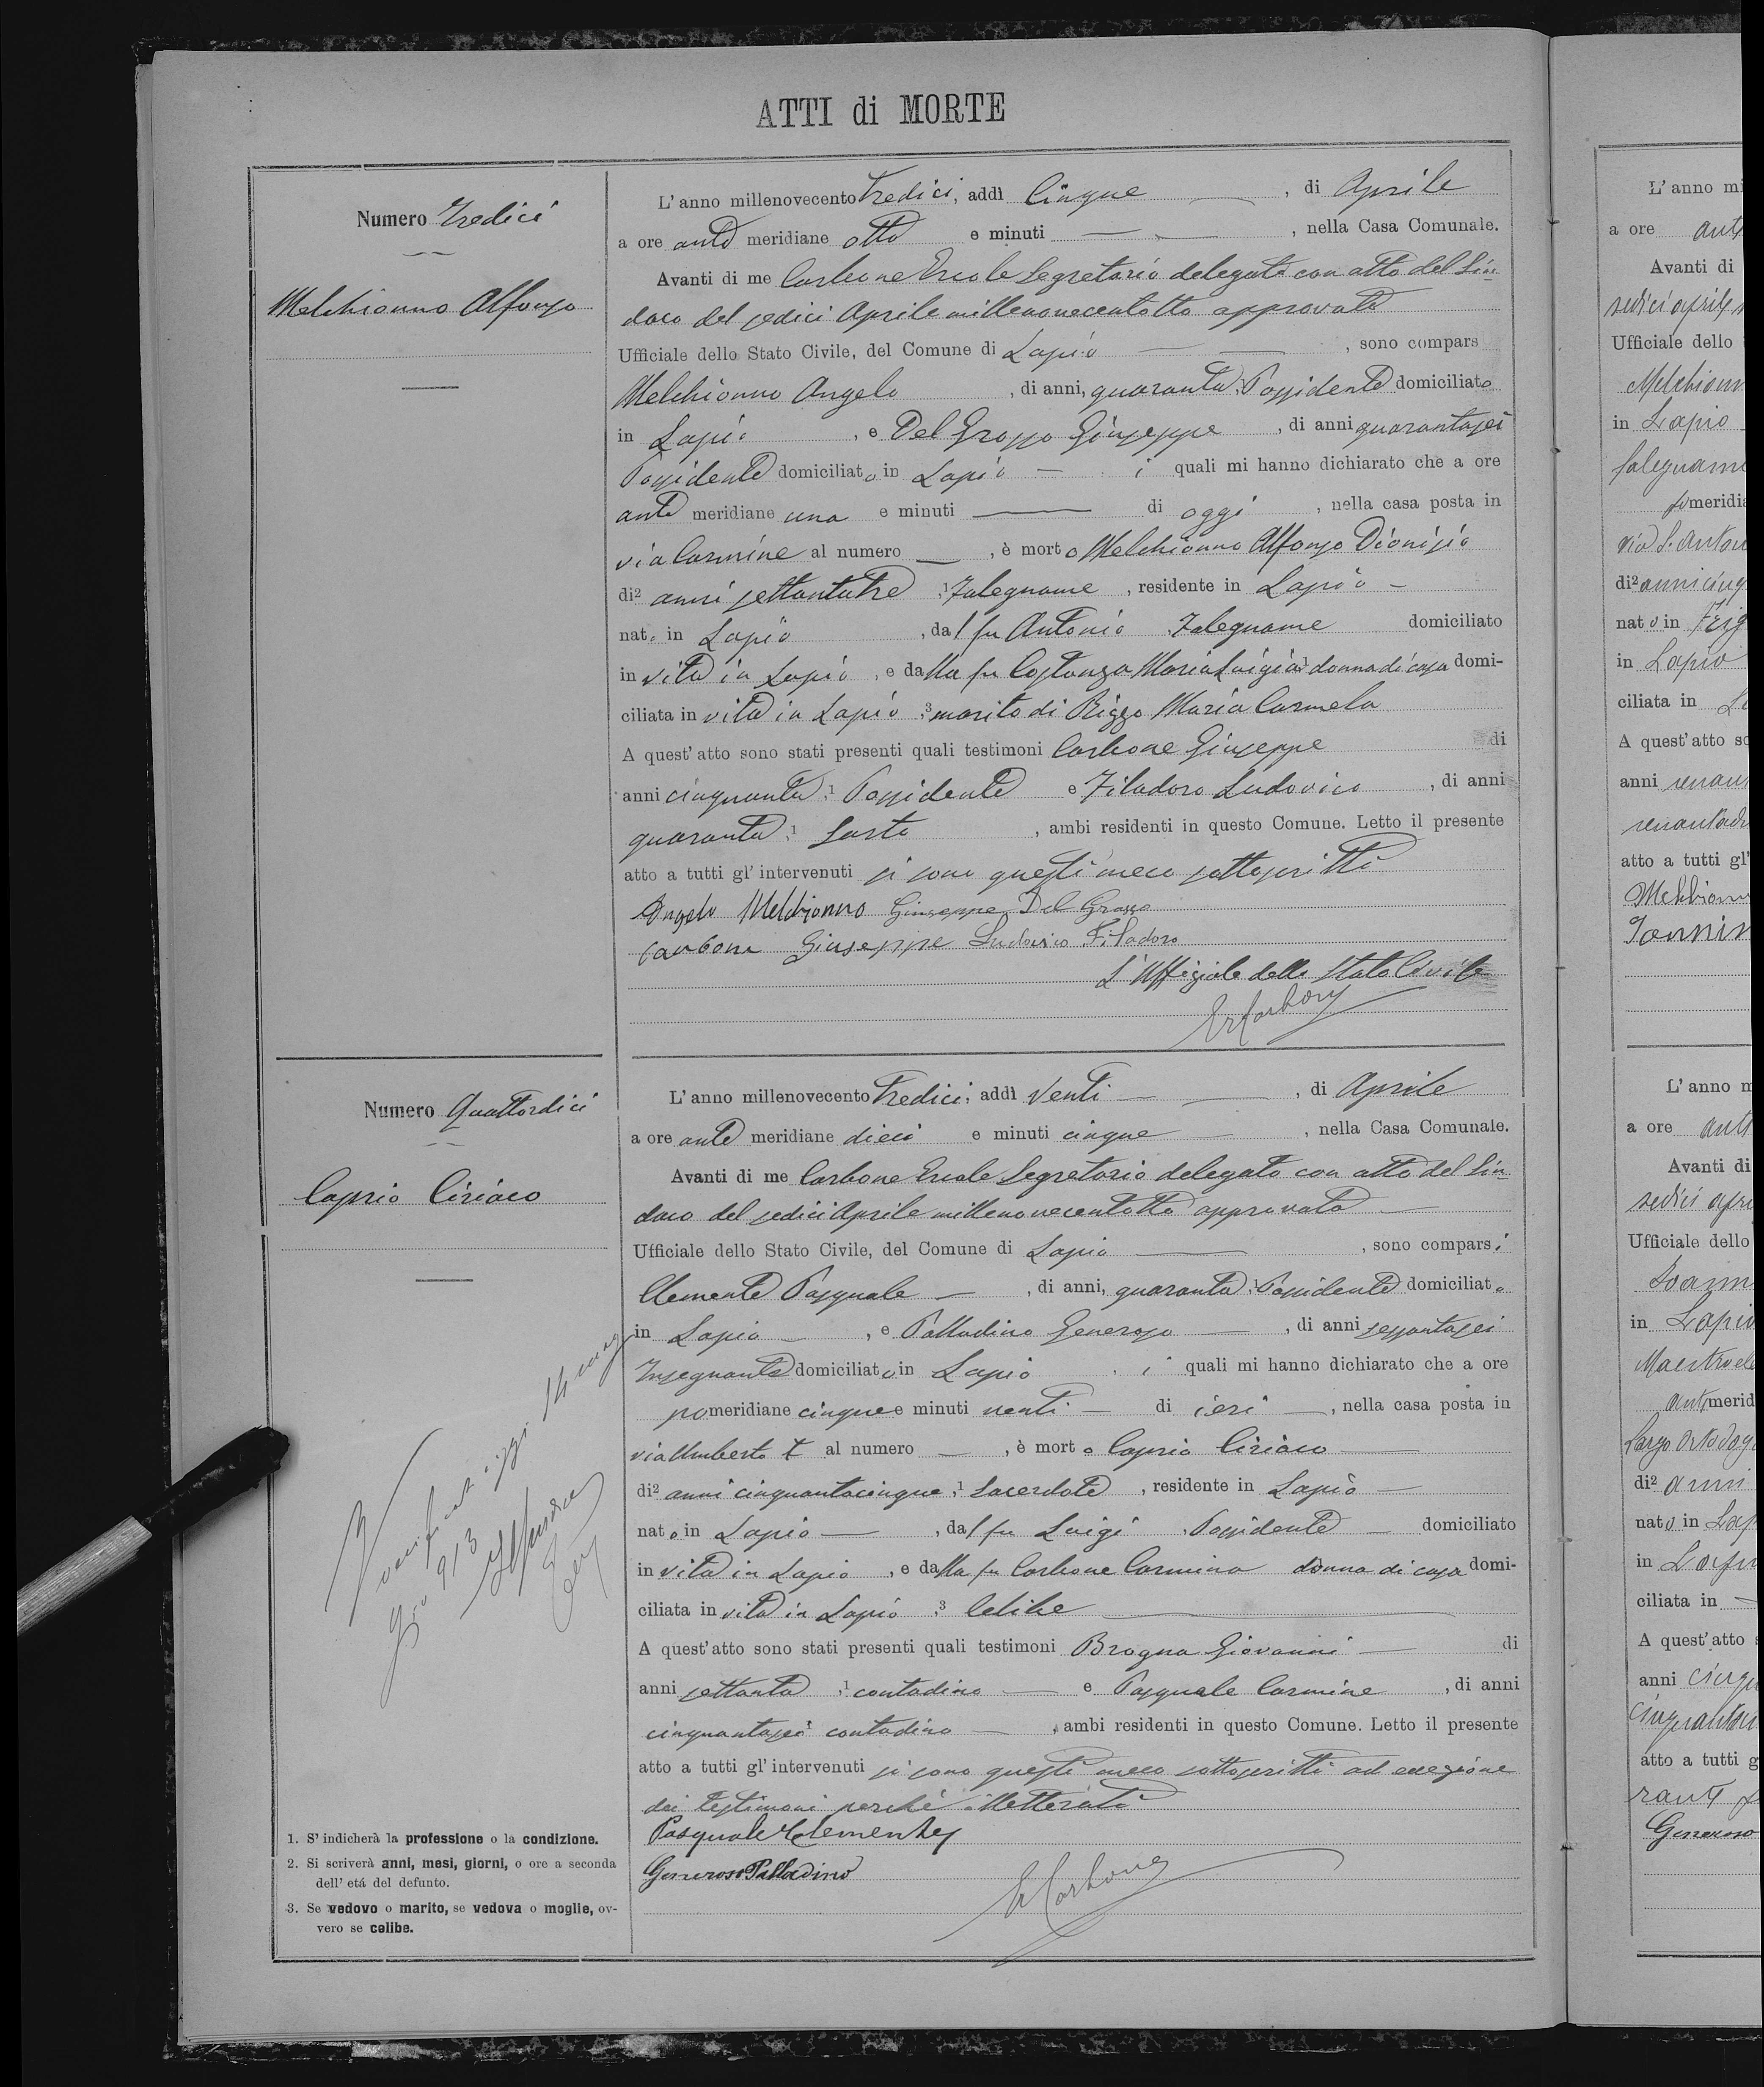 ATTI di MORTE
Numero Tredici
Melchionno Alfonso
L'anno millenovecento Tredici, addì Cinque, di Aprile
a ore ante meridiane otto e minuti — , nella Casa Comunale.
Avanti di me Carbone Ercole Segretario delegato con atto del Sin-
daco del sedici Aprile millenovecentotto approvato
Ufficiale dello Stato Civile, del Comune di Lapio — , sono compars
Melchionno Angelo, di anni, quaranta, Possidente domiciliato
in Lapio, e Del Grosso Giuseppe, di anni quarantasei
Possidente domiciliato in Lapio — i quali mi hanno dichiarato che a ore
ante meridiane una e minuti — di oggi, nella casa posta in
via Carmine al numero — , è morto Melchionno Alfonso Dionisio
di2 anni settantatre,1 Falegname, residente in Lapio —
nato in Lapio, dal fu Antonio Falegname domiciliato
in vita in Lapio, e dalla fu Costanza Maria Luigia1 donna di casa domi-
ciliata in vita in Lapio,3 marito di Rizzo Maria Carmela
A quest'atto sono stati presenti quali testimoni Carbone Giuseppe di
anni cinquanta,1 Possidente e Filadoro Ludovico, di anni
quaranta,1 Sarto, ambi residenti in questo Comune. Letto il presente
atto a tutti gl'intervenuti si sono questi meco sottoscritti
Angelo Melchionno Giuseppe Del Grosso
Carbone Giuseppe Ludovico Filadoro
L'Uffiziale dello Stato Civile
E Carbone
Numero Quattordici
Caprio Ciriaco
L'anno millenovecento Tredici, addì Venti — , di Aprile
a ore ante meridiane dieci e minuti cinque — , nella Casa Comunale.
Avanti di me Carbone Ercole Segretario delegato con atto del Sin-
daco del sedici Aprile millenovecentotto approvato —
Ufficiale dello Stato Civile, del Comune di Lapio — , sono comparsi
Clemente Pasquale — , di anni, quaranta,1 Possidente domiciliato
in Lapio — , e Palladino Generoso — , di anni sessantasei
Insegnante domiciliato in Lapio, i quali mi hanno dichiarato che a ore
pomeridiane cinque e minuti venti — di ieri — , nella casa posta in
via Umberto I al numero — , è morto Caprio Ciriaco —
di2 anni cinquantacinque,1 Sacerdote, residente in Lapio —
nato in Lapio — , dal fu Luigi, Possidente — domiciliato
in vita in Lapio, e dalla fu Carbone Carmina donna di casa domi-
ciliata in vita in Lapio,3 Celibe —
A quest'atto sono stati presenti quali testimoni Brogna Giovanni — di
anni settanta,1 contadino — e Pasquale Carmine, di anni
cinquantasei contadino — , ambi residenti in questo Comune. Letto il presente
atto a tutti gl'intervenuti si sono questi meco sottoscritti ad eccezione
dei testimoni perché illetterati
Pasquale Clemente
Generoso Palladino
E Carbone
1. S'indicherà la professione o la condizione.
2. Si scriverà anni, mesi, giorni, o ore a seconda
dell'etá del defunto.
3. Se vedovo o marito, se vedova o moglie, ov-
vero se celibe.
L'anno
a ore
Avanti di
sedici aprile
Ufficiale dello
in Lapio
nato in
in Lapio
ciliata in
A quest'atto
anni
atto a tutti
L'anno
a ore
Avanti di
Ufficiale dello
in Lapio
di2 anni
nato in
in
ciliata in
A quest'atto
anni
atto a tutti
Generoso